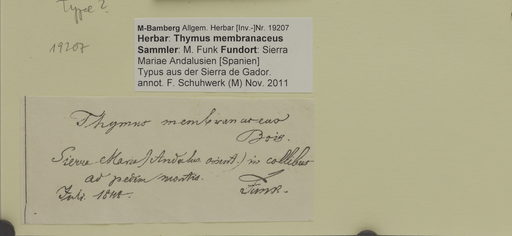 Type?
19207
M-Bamberg Allgem. Herbar [Inv.-]Nr. 19207
Herbar: Thymus membranaceus
Sammler: M. Funk Fundort: Sierra
Mariae Andalusien [Spanien]
Typus aus der Sierra de Gador.
annot. F. Schuhwerk (M) Nov. 2011
Thymus membranaceus
Bois.
Sierra Maria (Andalus. orient.) in collibus
ad pedem montis.
Funk.
1848.